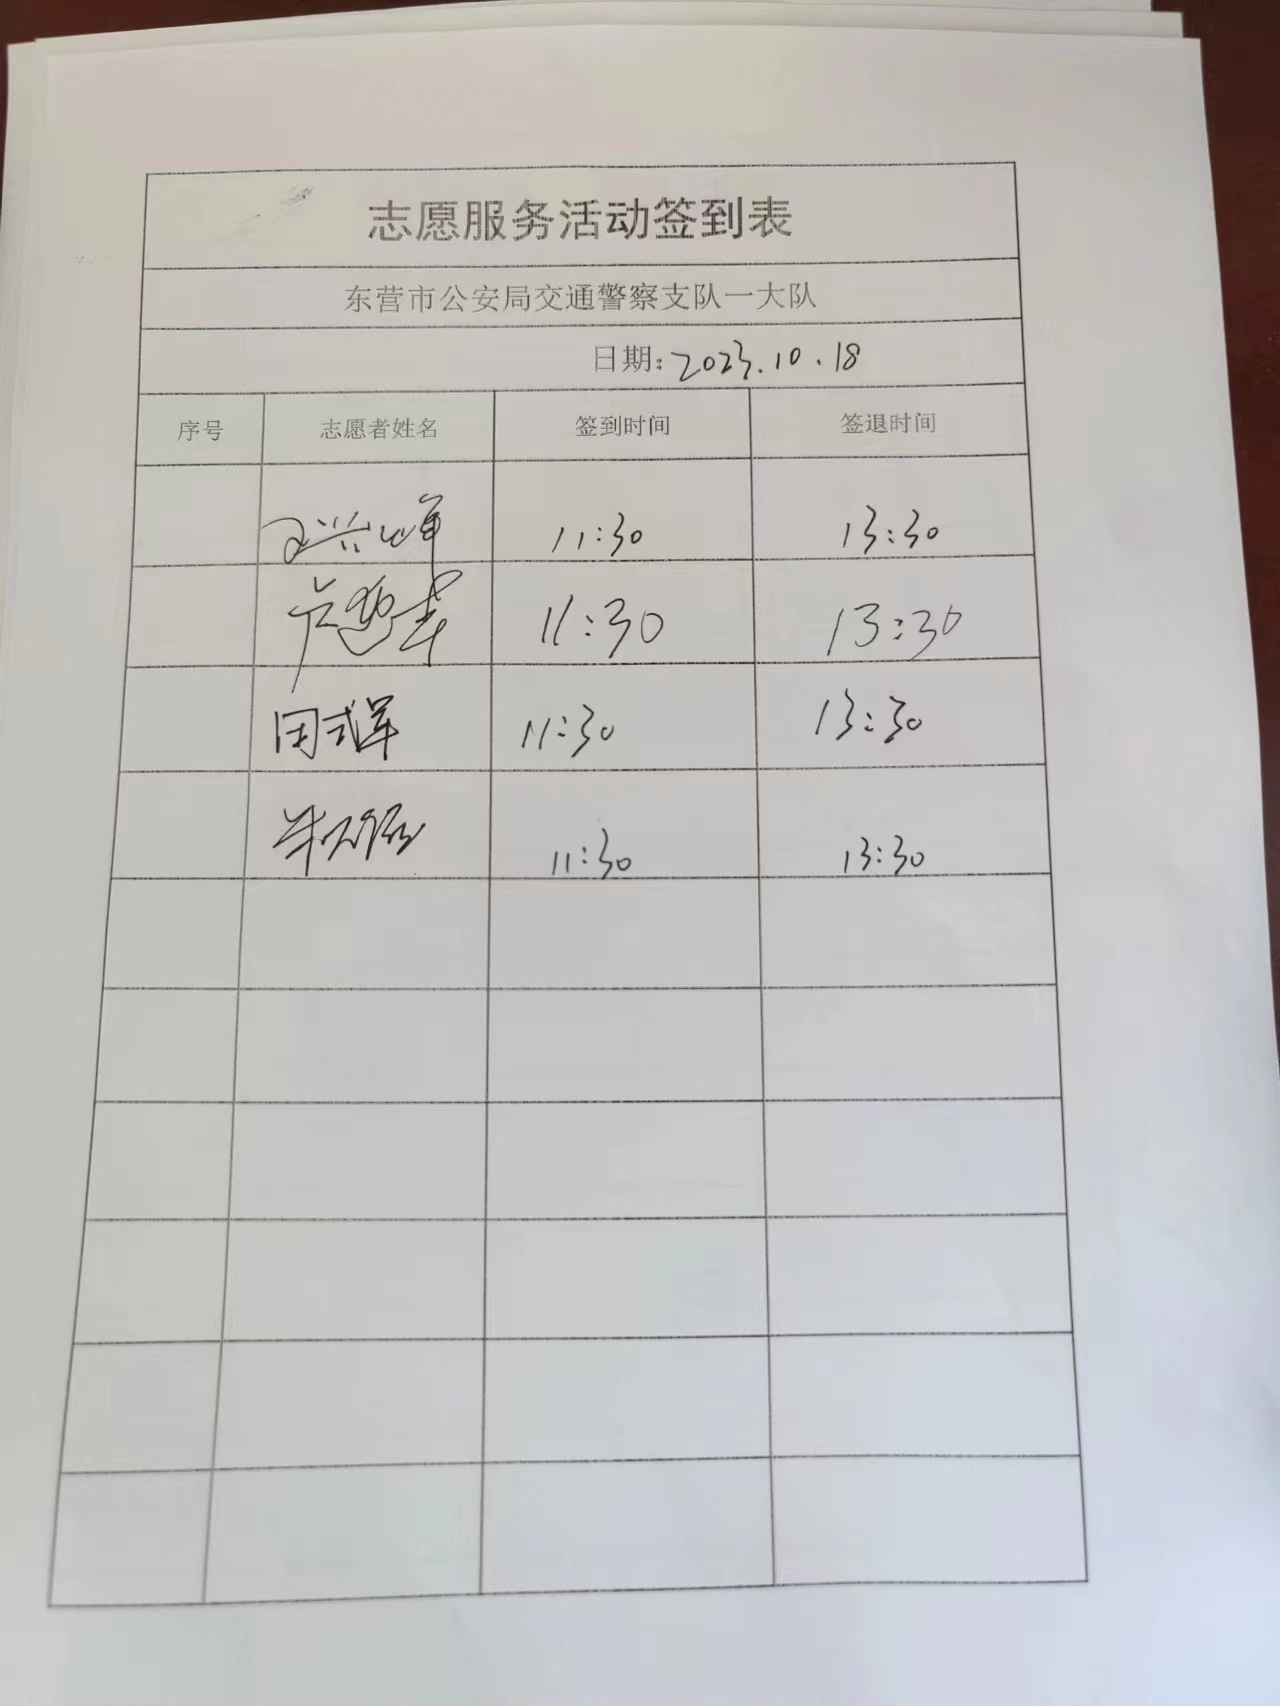 志愿服务活动签到表
东营市公安局交通警察支队一大队
日期: 2023.10.18
序号 志愿者姓名 签到时间 签退时间
王兴峰 11:30 13:30
11:30 13:30
田式军 11:30 13:30
11:30 13:30